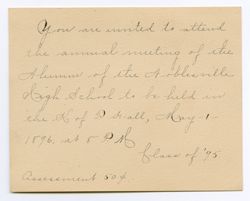 You are invited to attend
the annual meeting of the
Alumni of the Noblesville
High School to be held in
the K of P Hall, May 1-
1896. at 8 P M
Class of '95.
Assessment 50¢.